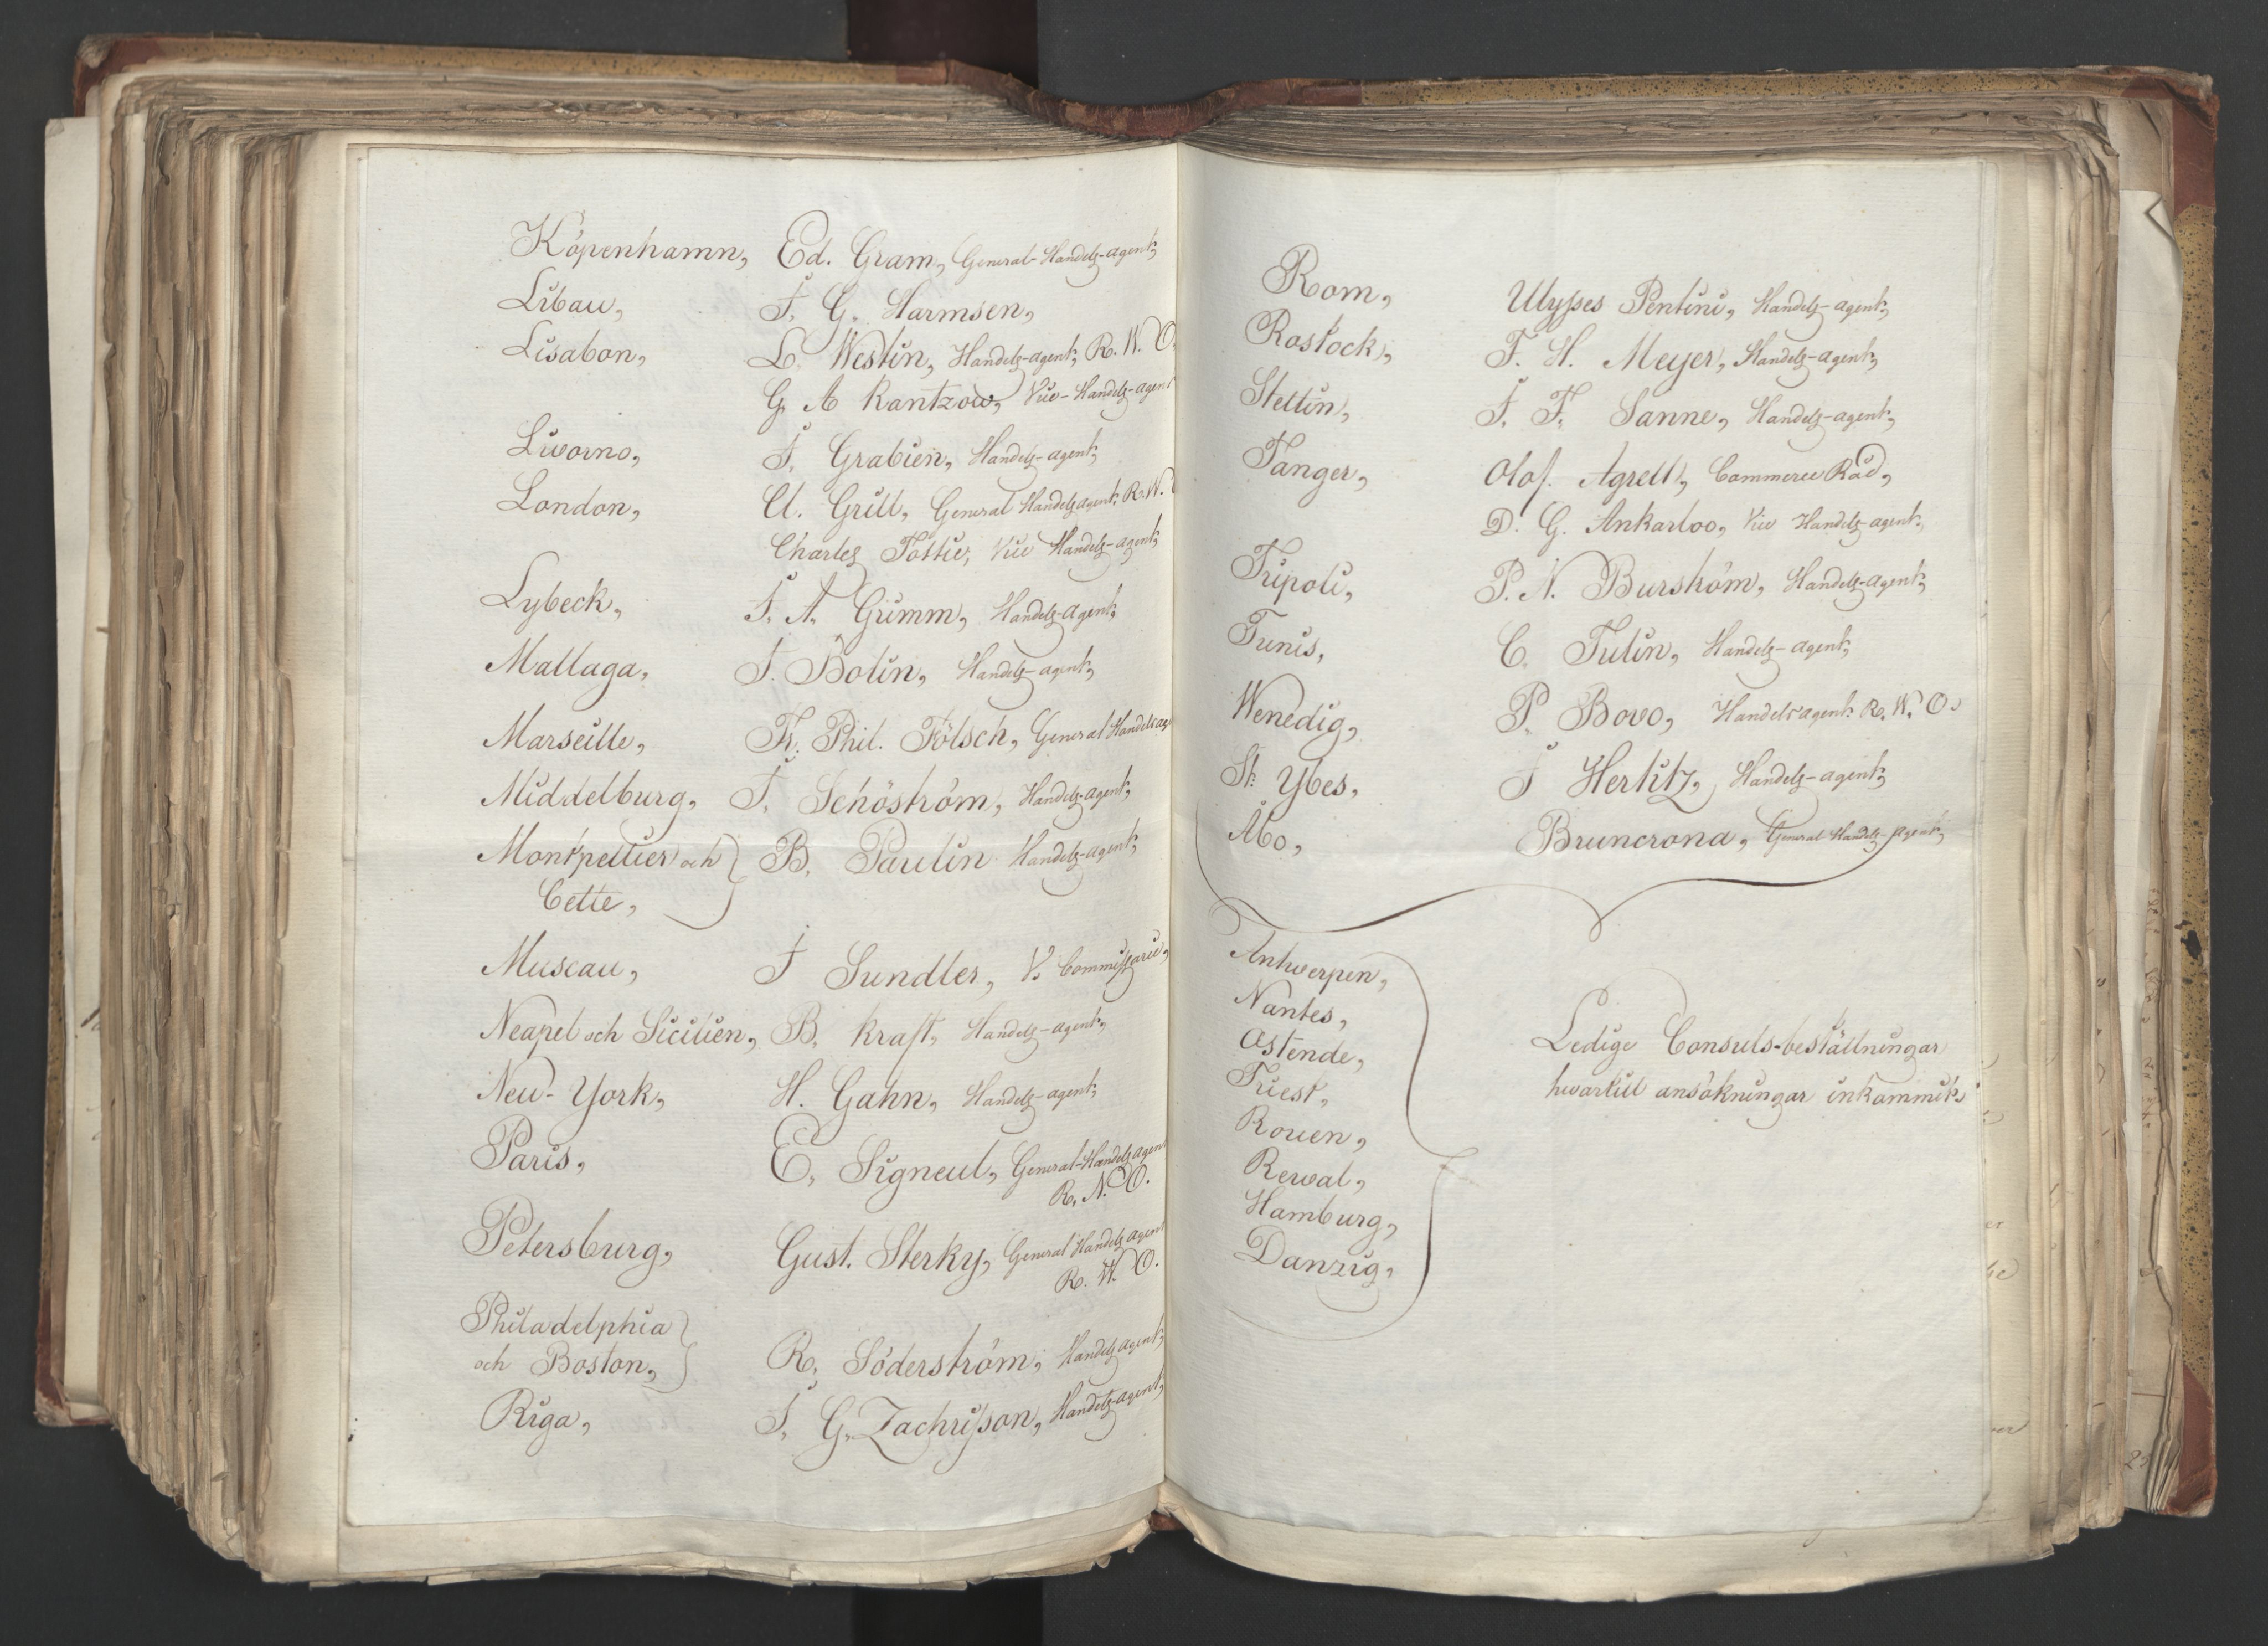 Köpenhamn, Ed. Gram, General-Handels-agent,
Libau, J. G. Harmsen,
Lisabon, L. Westin, Handels-agent, R. W. O.
G. A Kantzow, Vice-Handels-agent
Livorno, J. Grabien, Handels-agent,
London, Cl. Grill, General Handels agent, R. W.
Charles Tottie, Vice Handels-agent,
Lybeck, J. A. Grimm, Handels-agent,
Mallaga, J. Bolin, Handels-agent,
Marseille, Fr. Phil. Fölsch, General Handelsag
Middelburg, J. Schöström, Handels-agent,
Montpellier och B. Paulin Handels-agent,
Cette,
Muscau, J Sundler, V. Commissarie,
Neapel och Sicilien, B. Kraft, Handels-agent,
New-York, H. Gahn, Handels-agent,
Paris, E. Signeul, General-Handels agent
R. N. O.
Petersburg, Gust. Sterky, General Handels agent
R. W. O.
Philadelphia
och Boston, R. Söderström, Handels agent,
Riga, J. G. Zachrisson, Handels-agent,
Rom, Ulysses Pentini, Handels-agent,
Rostock, F. H. Meyer, Handels-agent,
Stettin, J. F. Sanne, Handels-agent,
Tanger, Olof. Agrell, Commerce Råd,
D. G. Ankarloo, Vice Handels-agent,
Tripoli, P. N. Burström, Handels-agent,
Tunis, C. Tulin, Handels-agent,
Wenedig, P. Bovo, Handels agent R. W. O.
St. Ybes, J Hertitz, Handels-agent,
Åbo, Bruncrona, General Handels-Agent,
Antwerpen,
Nantes,
Ostende,
Triest,
Rouen,
Rewal,
Hamburg,
Danzig,
Ledige Consuls-beställningar
hwartill ansökningar inkommit.